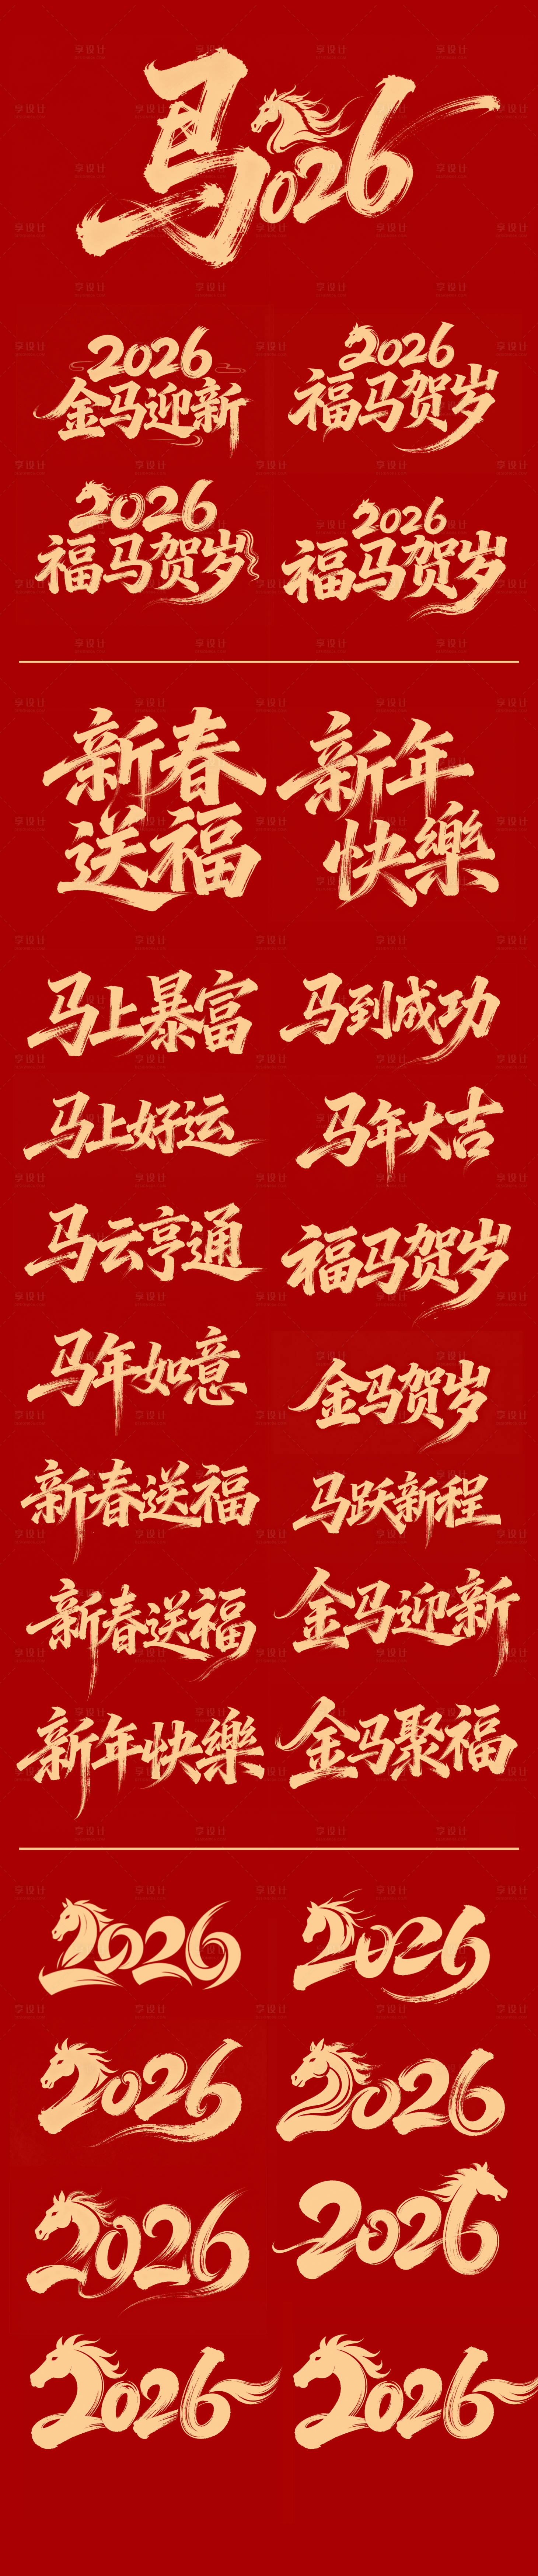 马026
2026
金马迎新
2026
福马贺岁
2026
福马贺岁
2026
福马贺岁
新春
送福
新年
快樂
马上暴富
马到成功
马上好运
马年大吉
马云亨通
福马贺岁
马年如意
金马贺岁
新春送福
马跃新程
新春送福
金马迎新
新年快樂
金马聚福
2026
2026
2026
2026
2026
2026
2026
2026